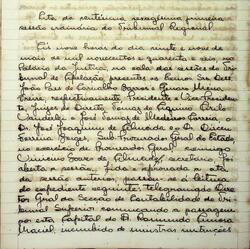 Ata da centésima sexagésima primeira
sessão ordinária do Tribunal Regional.
Às nove horas do dia vinte e nove de
maio de mil novecentos e quarenta e seis no
Palácio da Justiça, na sala das sessões do Tri-
bunal de Apelação presentes os Senhores Des.
João Pais de Carvalho Barros e Genaro Meira
Freire, respectivamente, Presidente e Vice Presiden-
te, Juizes de Direito
e José Tomaz de Medeiros Correia, e
Dr. José Joaquim de Almeida e o Dr. Dirceu
Ferreira Borges, Sub-Procurador Geral do Estado,
no exercício de Procurador Geral, comigo
Vinicius de Almeida, secretário. Foi
aberta a sessão, lida e aprovada a ata
da sessão anterior, passou-se à leitura
do expediente seguinte: telegrama do Dire-
tor Geral da Secção de Contabilidade do Tri-
bunal Superior comunicando a passagem
por esta Capital do Dr. Raimundo
Maciel, incumbido de ministrar instruções